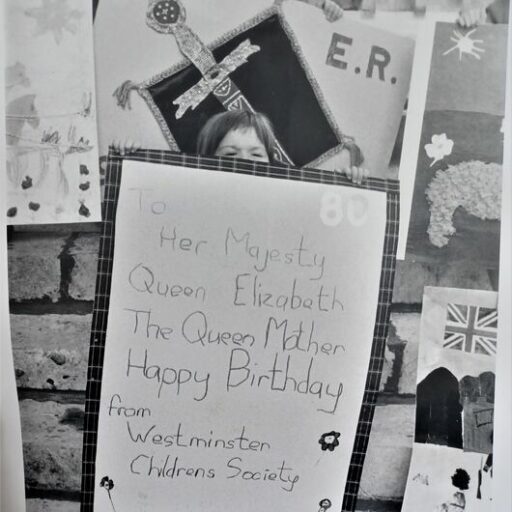 E.R.
80
To
Her Majesty
Queen Elizabeth
The Queen Mother
Happy Birthday
from
Westminster
Childrens Society